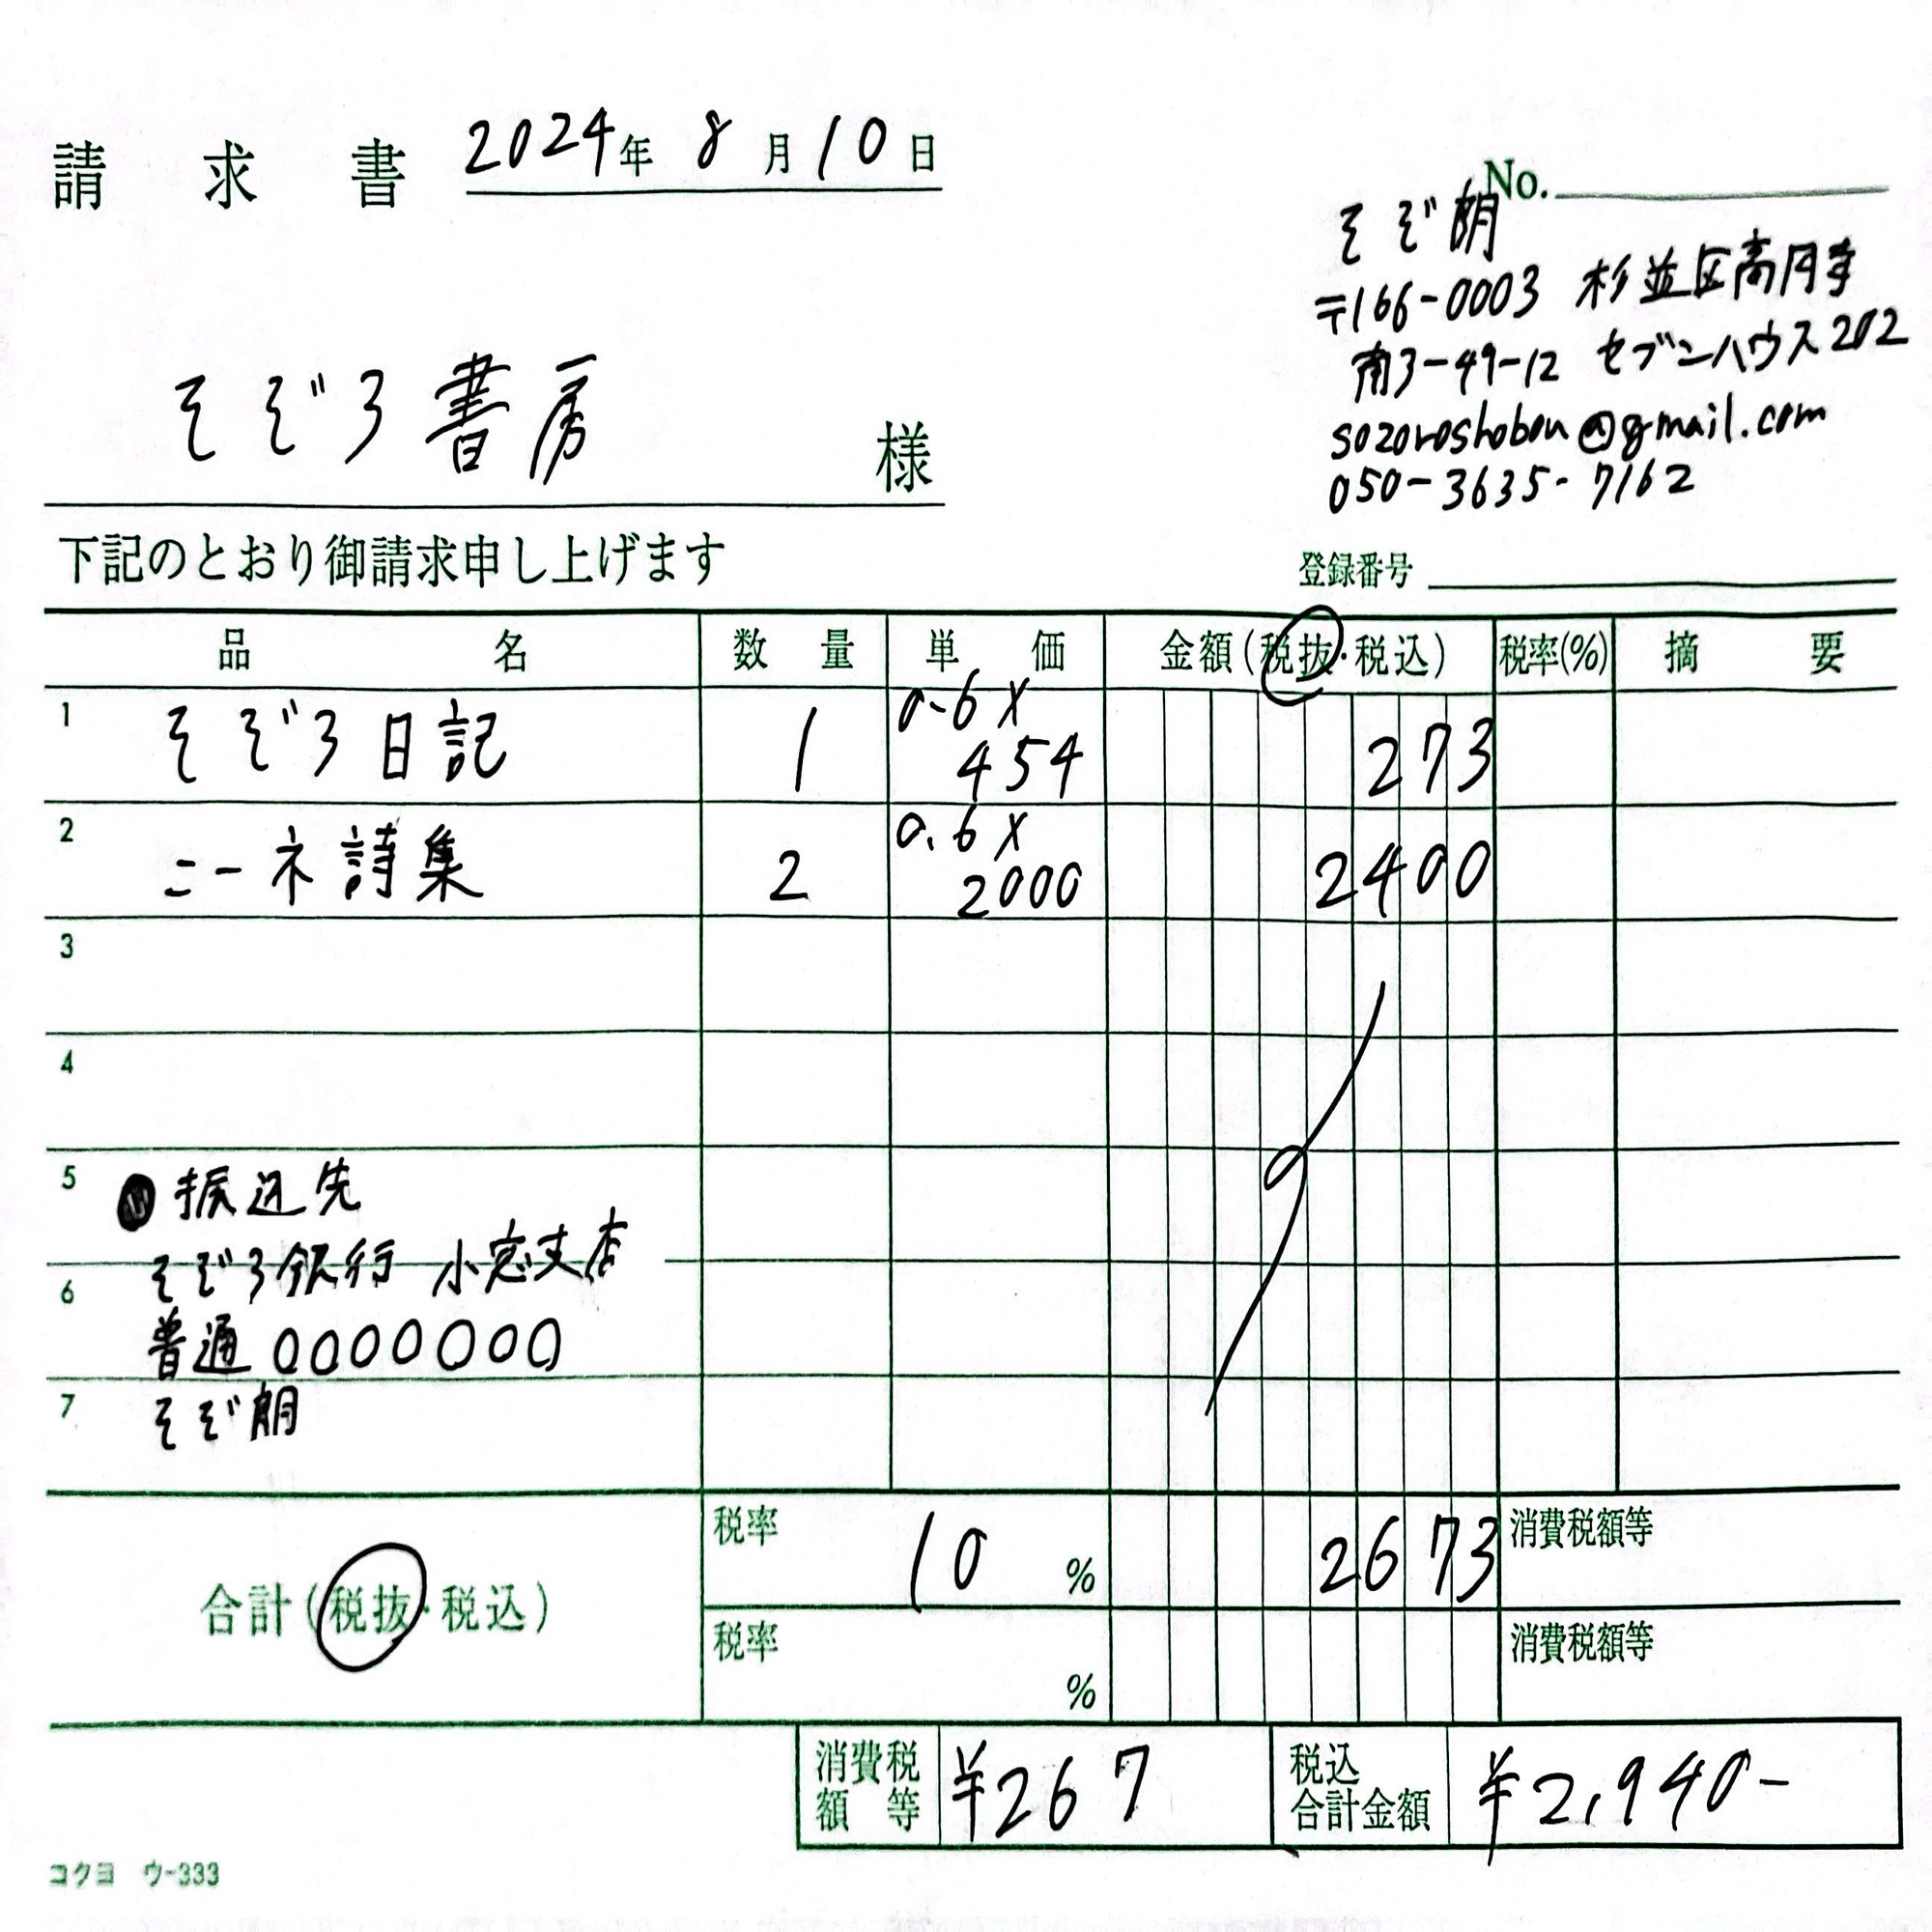 請求書 2024年 8月10日
No.
そぞ朗
〒166-0003 杉並区高円寺
南3-49-12 セブンハウス202
sozoroshobou@gmail.com
050-3635-7162
そぞろ書房 様
下記のとおり御請求申し上げます
登録番号
品名 数量 単価 金額(税抜・税込) 税率(%) 摘要
1 そぞろ日記 1 0.6× 454 273
2 ニーネ詩集 2 0.6× 2000 2400
3
4
5 振込先
そぞろ銀行 小窓支店
6 普通 0000000
7 そぞ朗
合計(税抜・税込) 税率 10 % 2673 消費税額等
税率 % 消費税額等
消費税額等 ¥267 税込合計金額 ¥2,940-
コクヨ ウ-333